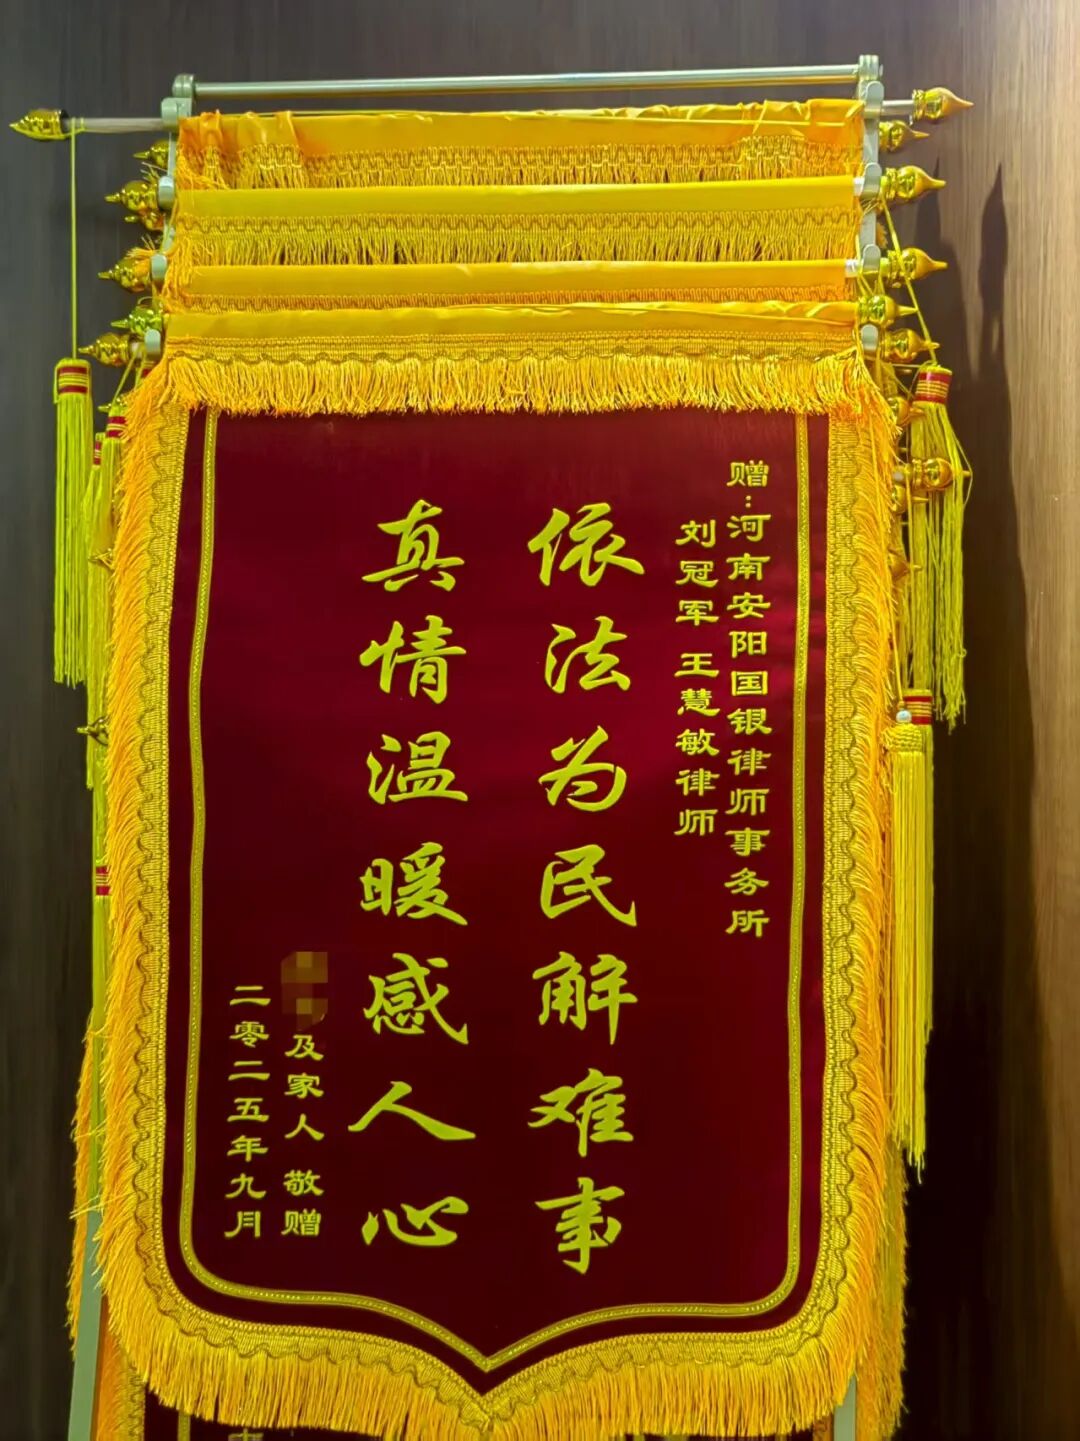 赠：河南安阳国银律师事务所
刘冠军 王慧敏律师
依法为民解难事
真情温暖感人心
及家人 敬赠
二零二五年九月